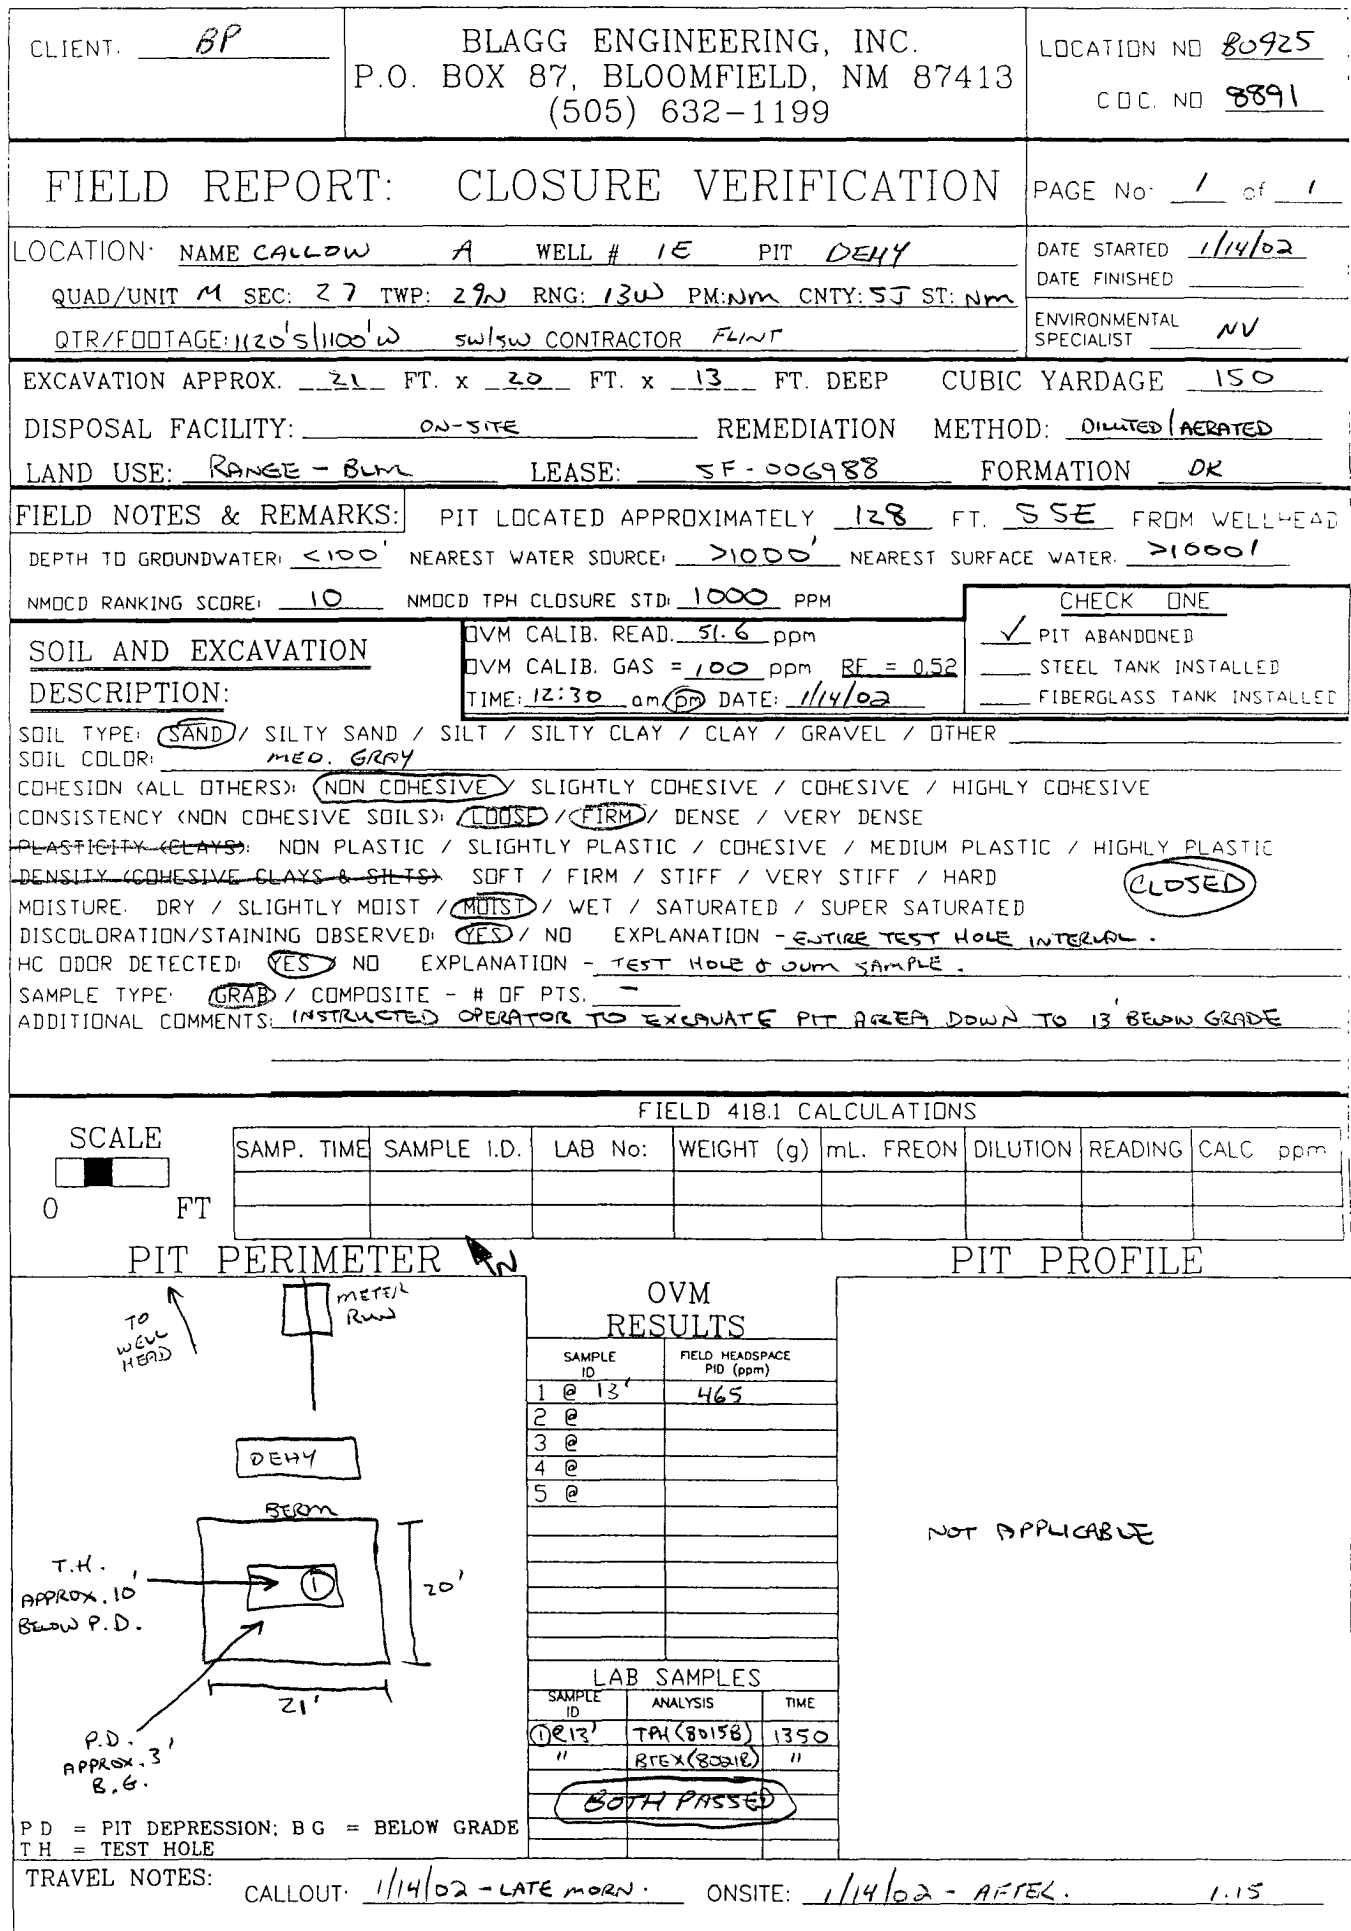 CLIENT. BP
BLAGG ENGINEERING, INC.
P.O. BOX 87, BLOOMFIELD, NM 87413
(505) 632-1199
LOCATION NO 80925
COC. NO 8891
FIELD REPORT: CLOSURE VERIFICATION
PAGE No. 1 of 1
LOCATION: NAME CALLOW A WELL # 1E PIT DEHY
QUAD/UNIT M SEC: 27 TWP: 29N RNG: 13W PM:NM CNTY: SJ ST: NM
QTR/FOOTAGE: 1120'S/1100'W SW/SW CONTRACTOR FLINT
DATE STARTED 1/14/02
DATE FINISHED
ENVIRONMENTAL
SPECIALIST NV
EXCAVATION APPROX. 21 FT. x 20 FT. x 13 FT. DEEP CUBIC YARDAGE 150
DISPOSAL FACILITY: ON-SITE REMEDIATION METHOD: DILUTED/AERATED
LAND USE: RANGE - BLM LEASE: SF-006988 FORMATION DK
FIELD NOTES & REMARKS: PIT LOCATED APPROXIMATELY 128 FT. SSE FROM WELLHEAD
DEPTH TO GROUNDWATER: <100' NEAREST WATER SOURCE: >1000' NEAREST SURFACE WATER. >1000'
NMOCD RANKING SCORE: 10 NMOCD TPH CLOSURE STD: 1000 PPM
SOIL AND EXCAVATION
DESCRIPTION:
OVM CALIB. READ. 51.6 ppm
OVM CALIB. GAS = 100 ppm RF = 0.52
TIME: 12:30 am/pm DATE: 1/14/02
CHECK ONE
✓ PIT ABANDONED
STEEL TANK INSTALLED
FIBERGLASS TANK INSTALLED
SOIL TYPE: SAND / SILTY SAND / SILT / SILTY CLAY / CLAY / GRAVEL / OTHER
SOIL COLOR: MED. GRAY
COHESION (ALL OTHERS): NON COHESIVE / SLIGHTLY COHESIVE / COHESIVE / HIGHLY COHESIVE
CONSISTENCY (NON COHESIVE SOILS): LOOSE / FIRM / DENSE / VERY DENSE
PLASTICITY (CLAYS): NON PLASTIC / SLIGHTLY PLASTIC / COHESIVE / MEDIUM PLASTIC / HIGHLY PLASTIC
DENSITY (COHESIVE CLAYS & SILTS) SOFT / FIRM / STIFF / VERY STIFF / HARD
CLOSED
MOISTURE. DRY / SLIGHTLY MOIST / MOIST / WET / SATURATED / SUPER SATURATED
DISCOLORATION/STAINING OBSERVED: YES / NO EXPLANATION - ENTIRE TEST HOLE INTERVAL.
HC ODOR DETECTED: YES / NO EXPLANATION - TEST HOLE & OVM SAMPLE.
SAMPLE TYPE: GRAB / COMPOSITE - # OF PTS. -
ADDITIONAL COMMENTS: INSTRUCTED OPERATOR TO EXCAVATE PIT AREA DOWN TO 13' BELOW GRADE
FIELD 418.1 CALCULATIONS
SCALE
0 FT
SAMP. TIME SAMPLE I.D. LAB No: WEIGHT (g) mL. FREON DILUTION READING CALC ppm
PIT PERIMETER N
TO
WELL
HEAD
METER
RUN
DEHY
BERM
T.H.
APPROX. 10'
BELOW P.D.
1
20'
21'
P.D.
APPROX. 3'
B.G.
P D = PIT DEPRESSION; B G = BELOW GRADE
T H = TEST HOLE
OVM
RESULTS
SAMPLE ID FIELD HEADSPACE PID (ppm)
1 @ 13' 465
2 @
3 @
4 @
5 @
LAB SAMPLES
SAMPLE ID ANALYSIS TIME
①@13' TPH (8015B) 1350
" BTEX (8021B) "
BOTH PASSED
PIT PROFILE
NOT APPLICABLE
TRAVEL NOTES: CALLOUT: 1/14/02 - LATE MORN. ONSITE: 1/14/02 - AFTER. 1.15